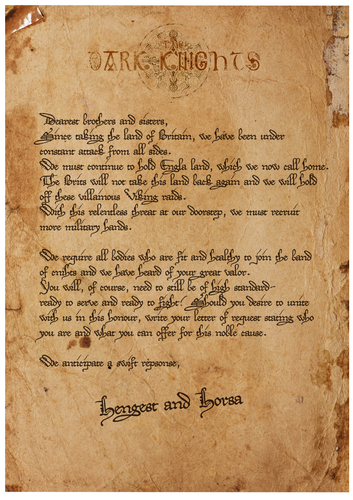 The
DARK KNIGHTS
Dearest brothers and sisters,
Since taking the land of Britain, we have been under
constant attack from all sides.
We must continue to hold Engla land, which we now call home.
The Brits will not take this land back again and we will hold
off these villainous Viking raids.
With this relentless threat at our doorstep, we must recruit
more military hands.
We require all bodies who are fit and healthy to join the band
of cnights and we have heard of your great valor.
You will, of course, need to still be of high standard-
ready to serve and ready to fight! Should you desire to unite
with us in this honour, write your letter of request stating who
you are and what you can offer for this noble cause.
We anticipate a swift repsonse,
Hengest and Horsa